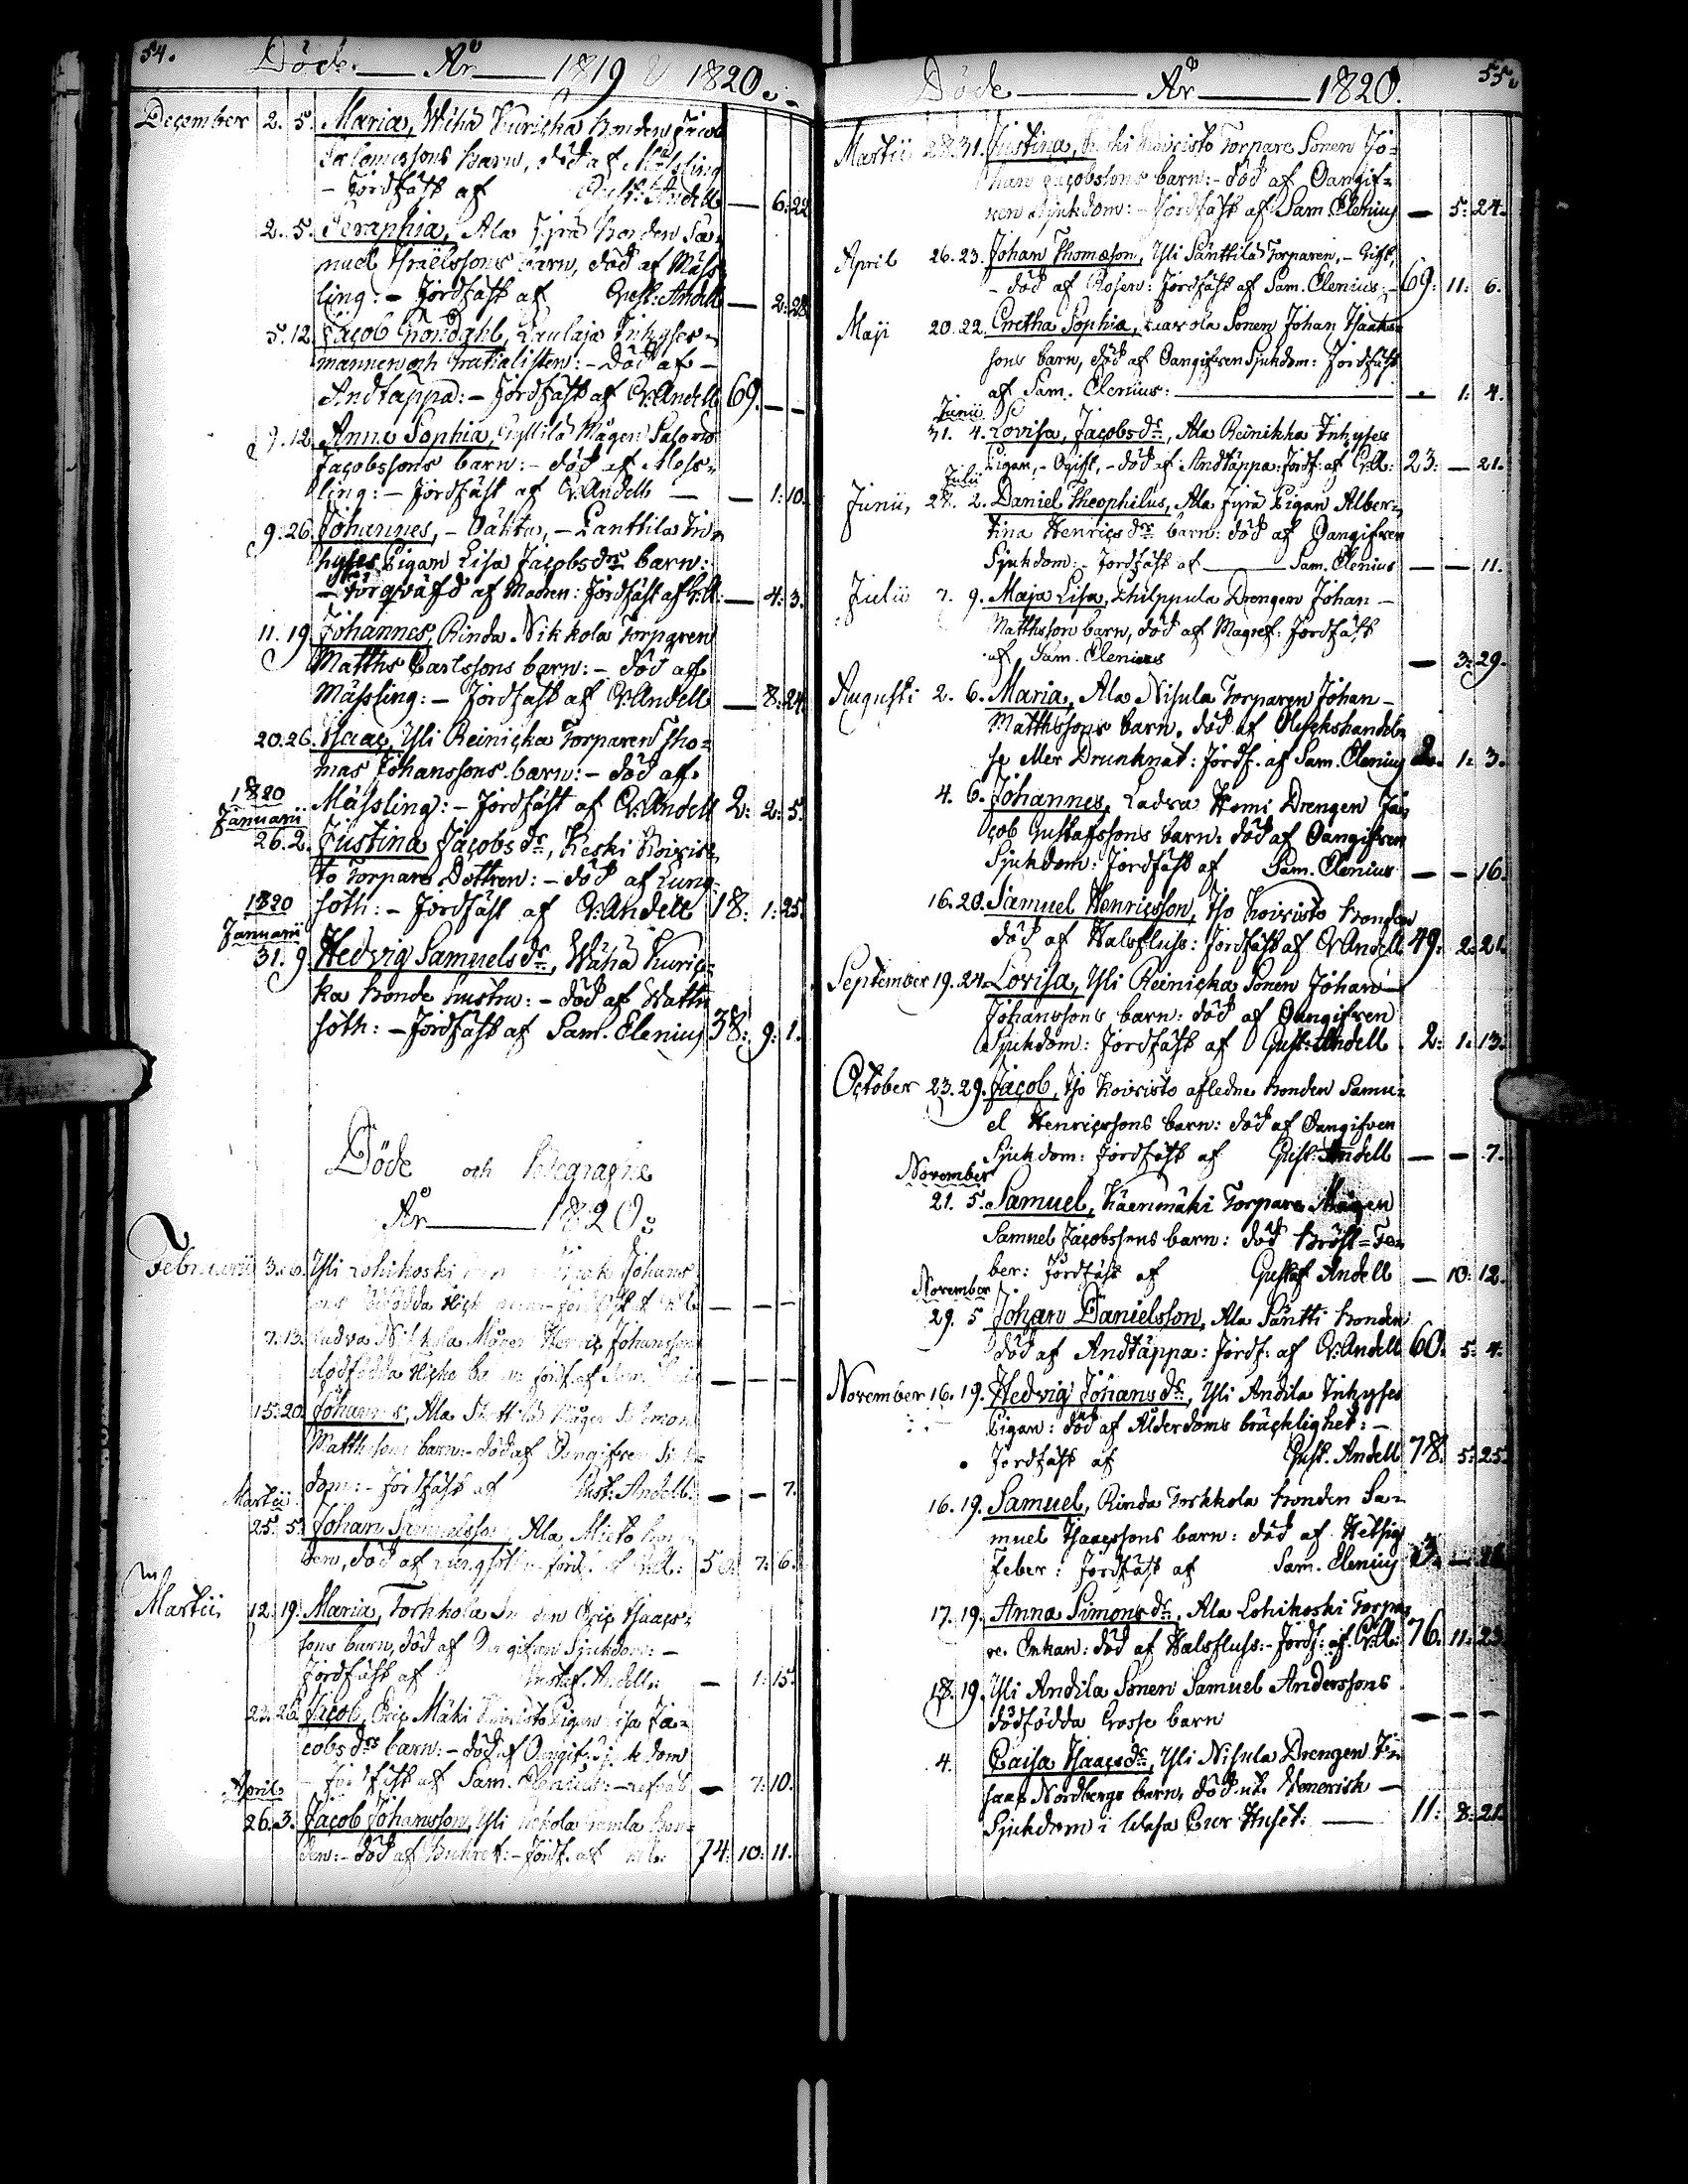 54.
Döde. — År — 1819 & 1820.
December 2. 5. Maria, Wähä Kuricka Bonden Jacob
Salomossons barn, död af Mässling
– Jordfäst af Gust: Andell — 6: 22
2. 5. Seraphia, Ala Jyrä Bonden Sa-
muel Israëlssons barn, död af Mäss-
ling: – Jordfäst af Gust: Andell — 2: 28
5. 12. Jacob Gröndahl, Laulaja Inhyses-
mannen och Gratialisten: – Död af –
Andtäppa: – Jordfäst af G: Andell 69. — —
9. 12. Anna Sophia, Gyllilä Mågen Salomo
Jacobssons barn: – död af Mess-
ling: – Jordfäst af G: Andell — — 1: 10.
9. 26. Johannes, – Oäkta, – Lanttila In-
hyses Pigan Lisa Jacobsdrs barn:
– Förqväfd af Madren: Jordfäst af G:A: — 4: 3.
11. 19. Johannes, Rinda Nikkola Torparen
Matths Carlssons barn: – död af
Mässling: – Jordfäst af G: Andell — 8: 24.
20. 26. Isaac, Yli Reinicka Torparen Tho-
mas Johanssons barn: – död af
Mässling: – Jordfäst af G: Andell 2: 2: 5.
1820
Januarii
26. 2. Justina Jacobsdr, Keski Koivis-
to Torpare Dottren: – död af Lung-
soth: – Jordfäst af G: Andell 18: 1: 25.
1820
Januarii
31. 9. Hedvig Samuelsdr, Wähä Kuric-
ka Bonde hustru: – död af Wattu
soth: – Jordfäst af Sam. Elenius 38: 9: 1.
Döde och Begrafne
År — 1820.
Februarii 3. 6. Yli Lohikoski Johans
sons dödfödda — — —
7. 13. Ladva Nikkola Mågen Henric Johanssons
dödfödda Flicke barn: Jordf. af Sam. — — —
15. 20. Johannes, Ala Mågen Salomon
Matthssons barn: – död af Oangifven Sjuk-
dom: – Jordfäst af Gust: Andell. — — 7.
Martii
25. 5. Johan Samuelsson, Ala Mieto Bon-
den, död af Lungsoth: – Jordf. af G:A: 50: 7: 6.
Martii 12. 19. Maria, Torkkola Bonden Eric Isaacs-
sons barn, död af Oangifven Sjukdom: –
Jordfäst af Gustaf. Andell: — 1: 15.
23. 26. Jacob, Eric Mäki Koivisto Pigan Lisa Ja-
cobsdrs barn: – död af Oangif. Sjukdom
– Jordfäst af Sam. Elenius: — 7: 10.
April
26. 3. Jacob Johansson, Yli gamla Bon-
den: – död af Buhref: – Jordf. af 74: 10: 11.
55.
Döde — År — 1820.
Martii 28. 31. Justina, Keski Koivisto Torpare Sonen Jo-
han Jacobssons barn: – död af Oangif-
ven Sjukdom: – Jordfäst af Sam. Elenius — 5: 24.
April 26. 23. Johan Thomæson, Yli Säntilä Torparen, – Gift,
– död af Rosen: Jordfäst af Sam. Elenius: – 69: 11: 6.
Maji 20. 22. Gretha Sophia, Luavola Sonen Johan Isaaks-
sons barn, död af Oangifven Sjukdom: Jordfäst
af Sam. Elenius: — — 1: 4.
Junii
31. 4. Lovisa, Jacobsdr, Ala Reinikka Inhyses
Pigan, – Ogift, – död af Andtäppa: Jordf. af G:A: 23: — 21.
Julii
Junii, 28. 2. Daniel Theophilus, Ala Jyrä Pigan Alber-
tina Henricsdrs barn: död af Oangifven
Sjukdom: – Jordfäst af — Sam. Elenius — — 11.
Julii 7. 9. Maja Lisa, Philppula Drengen Johan –
Matthsson barn, död af Magref: Jordfäst
af Sam. Elenius — 3: 29.
Augusti 2. 6. Maria, Ala Nisula Torparen Johan –
Matthssons barn, död af Olyckshändel-
se eller Drunknat: Jordf. af Sam. Elenius 2. 1: 3.
4. 6. Johannes, Ladva Homi Drengen Ja-
cob Gustafssons barn: död af Oangifven
Sjukdom: Jordfäst af Sam. Elenius — — 16.
16. 20. Samuel Henricsson, Iso Koivisto Bonden
död af Halsfluss: Jordfäst af G: Andell 49: 2: 21.
September 19. 24. Lovisa, Yli Reinicka Sonen Johan –
Johanssons barn: död af Oangifven
Sjukdom: Jordfäst af Gust: Andell 2: 1: 13.
October 23. 29. Jacob, Iso Koivisto afledne Bonden Samu-
el Henricssons barn: död af Oangifven
Sjukdom: Jordfäst af Gust: Andell — — 7.
November
21. 5. Samuel, Käenmäki Torpare Mågen
Samuel Jacobssons barn: död Bröst-Fe-
ber: Jordfäst af Gustaf Andell — 10: 12.
November
29. 5 Johan Danielsson, Ala Säntti Bonden
död af Andtäppa: Jordf: af G: Andell 60: 5: 4.
November 16. 19. Hedvig Johansdr, Yli Andila Inhyses
Pigan: död af Ålderdoms bräcklighet: –
Jordfäst af Gust. Andell 78. 5: 25.
16. 19. Samuel, Rinda Torkkola Bonden Sa-
muel Isaacssons barn: död af Hetsig
Feber: Jordfäst af Sam. Elenius 3.
17. 19. Anna Simonsdr, Ala Lohikoski Torpa-
re Enkan: död af Halsfluss: – Jordf: af G:A: 76. 11: 23.
18. 19. Yli Andila Sonen Samuel Anderssons
dödfödda Gosse barn — — —
4. Caisa Isaacsdr, Yli Nisula Drengen I-
saac Nordbergs barn, död uti Venerisk –
Sjukdom i Wasa Cur Huset: — 11: 8: 21.